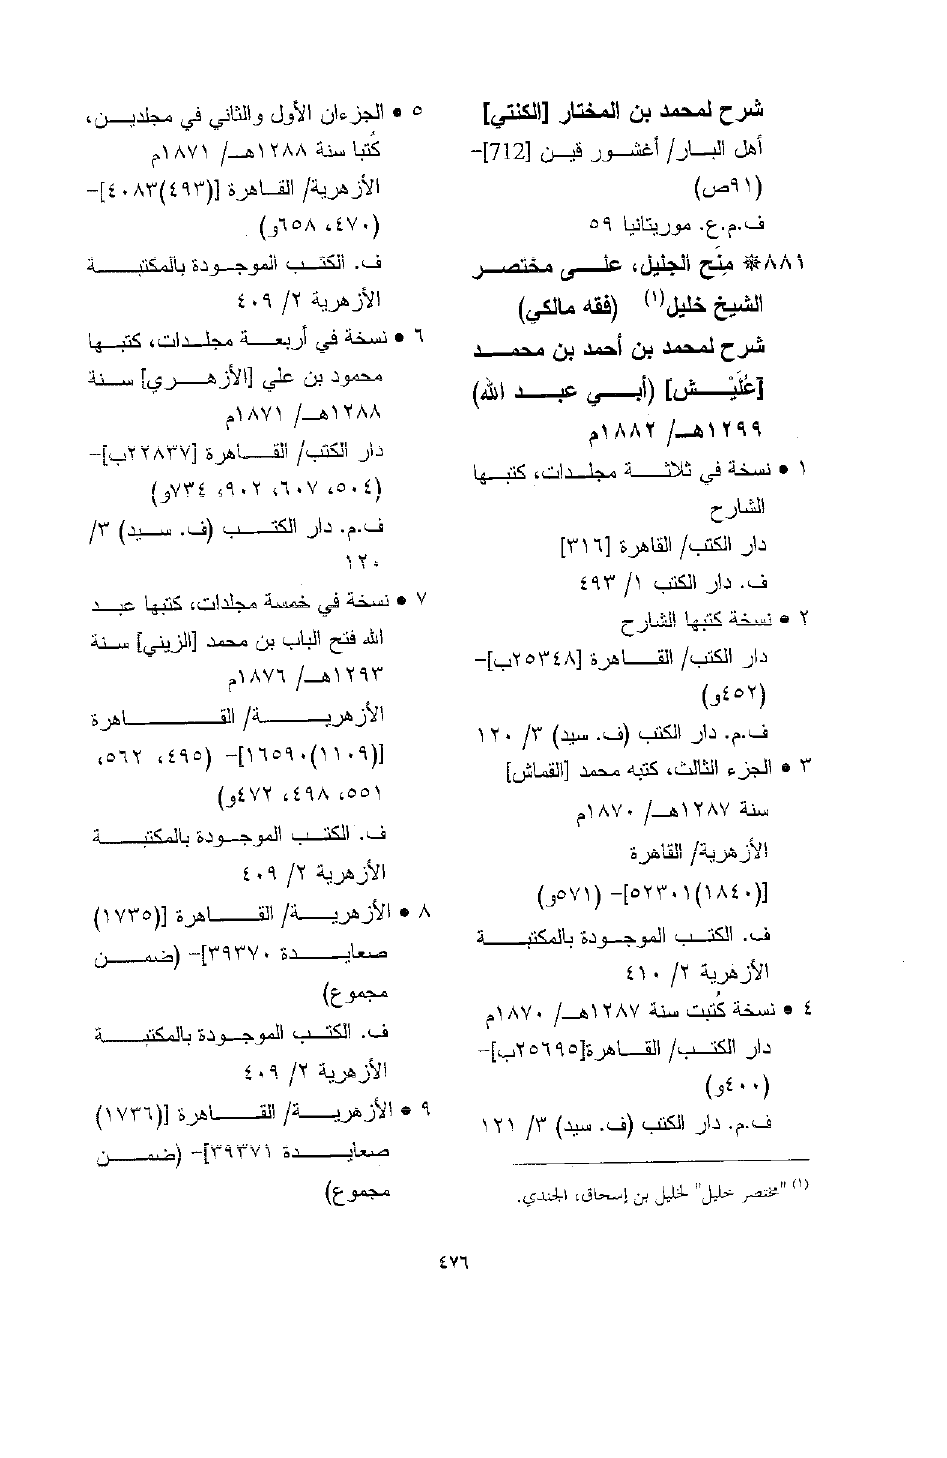 شرح لمحمد بن المختار [الكنتي]
أهل البار/ أغشور قين [712]-
(٩١ص)
ف.م.ع. موريتانيا ٥٩
٨٨١* مِنَح الجليل، على مختصر
الشيخ خليل(١) (فقه مالكي)
شرح لمحمد بن أحمد بن محمد
[عُلَيْش] (أبي عبد الله)
١٢٩٩هـ/ ١٨٨٢م
١ • نسخة في ثلاثة مجلدات، كتبها
الشارح
دار الكتب/ القاهرة [٣١٦]
ف. دار الكتب ١/ ٤٩٣
٢ • نسخة كتبها الشارح
دار الكتب/ القاهرة [٢٥٣٤٨ب]-
(٤٥٢و)
ف.م. دار الكتب (ف. سيد) ٣/ ١٢٠
٣ • الجزء الثالث، كتبه محمد [القماش]
سنة ١٢٨٧هـ/ ١٨٧٠م
الأزهرية/ القاهرة
[(١٨٤٠)٥٢٣٠١]- (٥٧١و)
ف. الكتب الموجودة بالمكتبة
الأزهرية ٢/ ٤١٠
٤ • نسخة كُتبت سنة ١٢٨٧هـ/ ١٨٧٠م
دار الكتب/ القاهرة[٢٥٦٩٥ب]-
(٤٠٠و)
ف.م. دار الكتب (ف. سيد) ٣/ ١٢١
(١) "مختصر خليل" لخليل بن إسحاق، الجندي.
٥ • الجزءان الأول والثاني في مجلدين،
كُتبا سنة ١٢٨٨هـ/ ١٨٧١م
الأزهرية/ القاهرة [(٤٩٣)٤٠٨٣]-
(٤٧٠، ٦٥٨و)
ف. الكتب الموجودة بالمكتبة
الأزهرية ٢/ ٤٠٩
٦ • نسخة في أربعة مجلدات، كتبها
محمود بن علي [الأزهري] سنة
١٢٨٨هـ/ ١٨٧١م
دار الكتب/ القاهرة [٢٢٨٣٧ب]-
(٥٠٤، ٦٠٧، ٩٠٢، ٧٣٤و)
ف.م. دار الكتب (ف. سيد) ٣/
١٢٠
٧ • نسخة في خمسة مجلدات، كتبها عبد
الله فتح الباب بن محمد [الزيني] سنة
١٢٩٣هـ/ ١٨٧٦م
الأزهرية/ القاهرة
[(١١٠٩)١٦٥٩٠]- (٤٩٥، ٥٦٢،
٥٥١، ٤٩٨، ٤٧٢و)
ف. الكتب الموجودة بالمكتبة
الأزهرية ٢/ ٤٠٩
٨ • الأزهرية/ القاهرة [(١٧٣٥)
صعايدة ٣٩٣٧٠]- (ضمن
مجموع)
ف. الكتب الموجودة بالمكتبة
الأزهرية ٢/ ٤٠٩
٩ • الأزهرية/ القاهرة [(١٧٣٦)
صعايدة ٣٩٣٧١]- (ضمن
مجموع)
٤٧٦